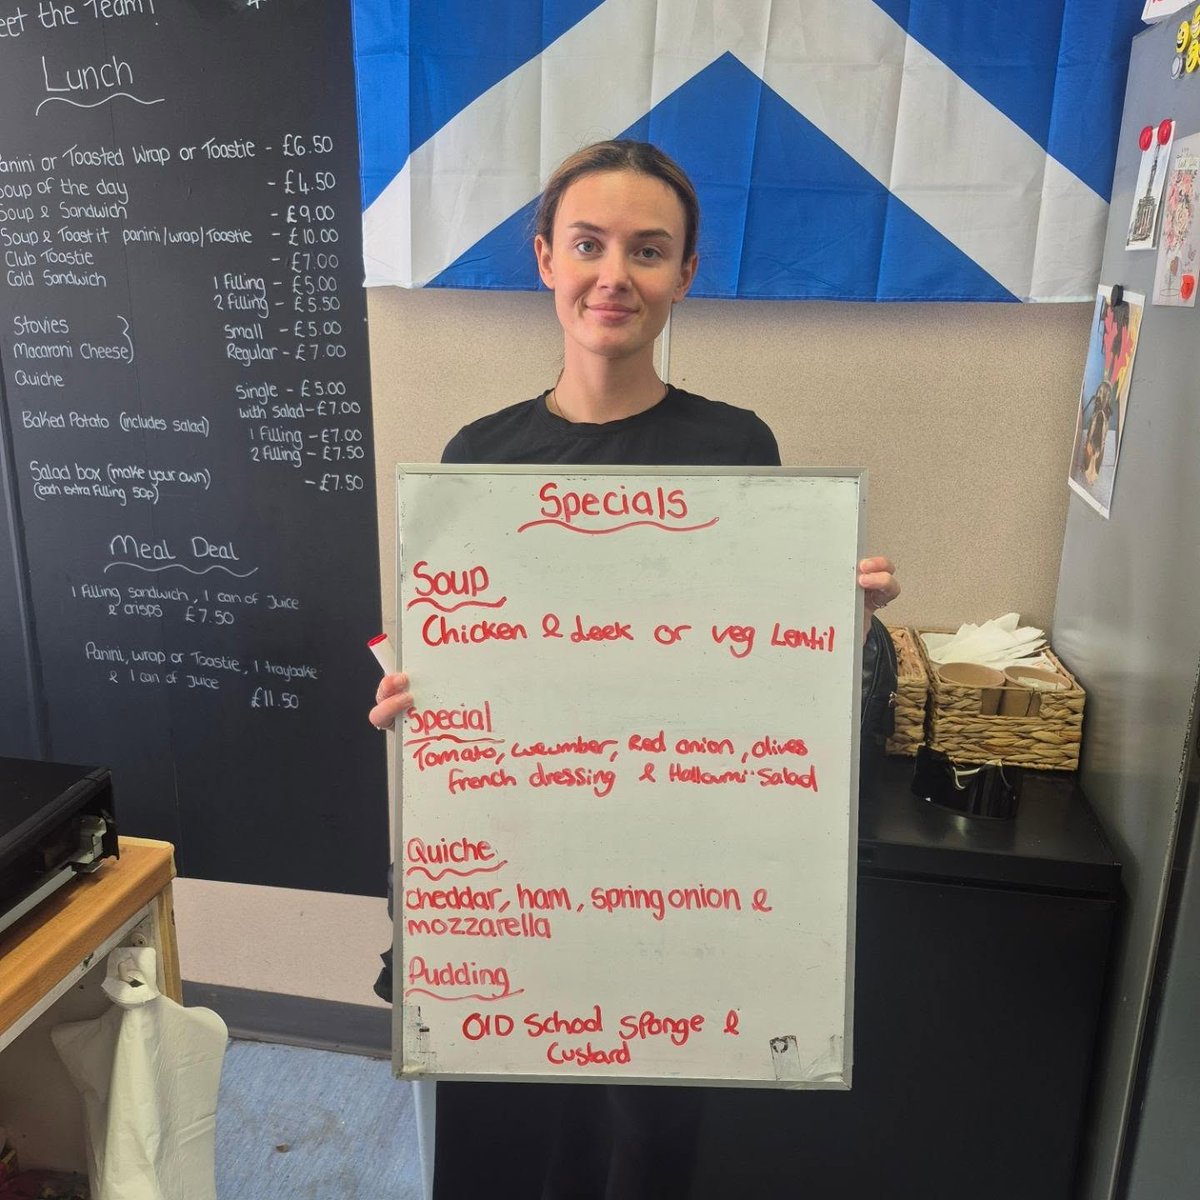 eet the Team!
Lunch
anini or Toasted Wrap or Toastie - £6.50
Soup of the day - £4.50
Soup & Sandwich - £9.00
Soup & Toastit panini/wrap/Toastie - £10.00
Club Toastie - £7.00
Cold Sandwich 1 Filling - £5.00
2 Filling - £5.50
Stovies Small - £5.00
Macaroni Cheese Regular - £7.00
Quiche Single - £5.00
with Salad - £7.00
Baked Potato (includes salad) 1 Filling - £7.00
2 Filling - £7.50
Salad box (make your own) - £7.50
(each extra Filling 50p)
Meal Deal
1 Filling sandwich, 1 can of Juice
& crisps £7.50
Panini, wrap or Toastie, 1 traybake
& 1 can of Juice
£11.50
Specials
Soup
Chicken & Leek or veg Lentil
Special
Tomato, cucumber, Red onion, olives
French dressing & Halloumi Salad
Quiche
cheddar, ham, spring onion &
mozzarella
Pudding
OlD School Sponge &
Custard